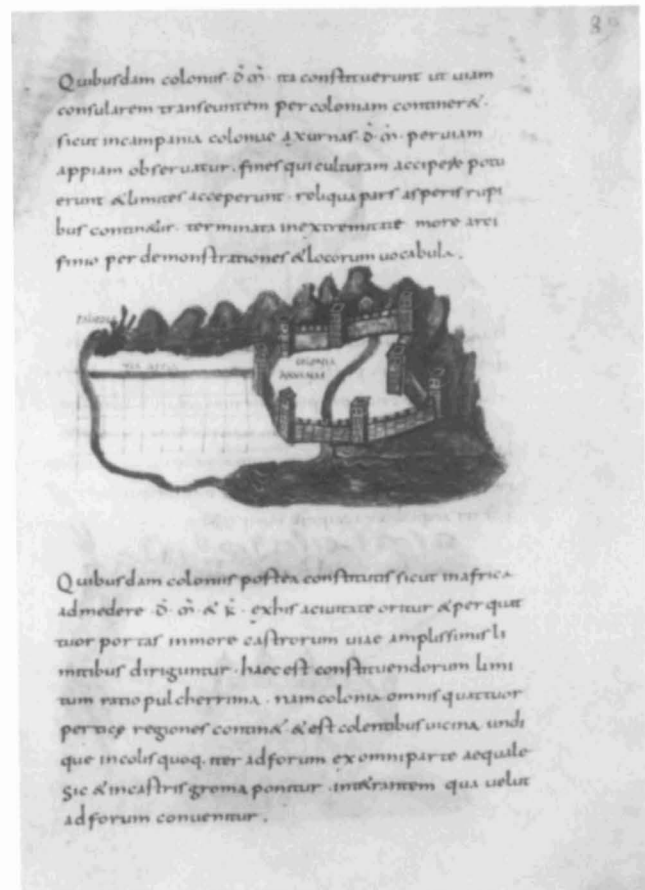 Quibusdam coloniis · d̄ m̄ · ita constituerunt ut uiam
consularem transeuntem per coloniam contineret ·
sicut incampania coloniae axurnas · d̄ m̄ · peruiam
appiam obseruatur · fines qui culturam accipere potu
erunt & limites acceperunt · reliqua pars asperis rupi
bus contin&ur · terminata inextremitate more arci
finio per demonstrationes & locorum uocabula .
uia appia
colonia
Quibusdam coloniis postea constitutis sicut inafrica
admedere · d̄ m̄ · & k̄ · exhis aciuitate oritur & per quat
tuor portas inmore castrorum uiae amplissimis li
mitibus diriguntur · haec est constituendorum limi
tum ratio pulcherrima · nam colonia omnis quattuor
perticę regiones contin& & est colentibus uicina undi
que incolis quoq. iter adforum ex omni parte aequale
Sic & incastris groma ponitur · int&rantem qua uelut
adforum conuenitur .